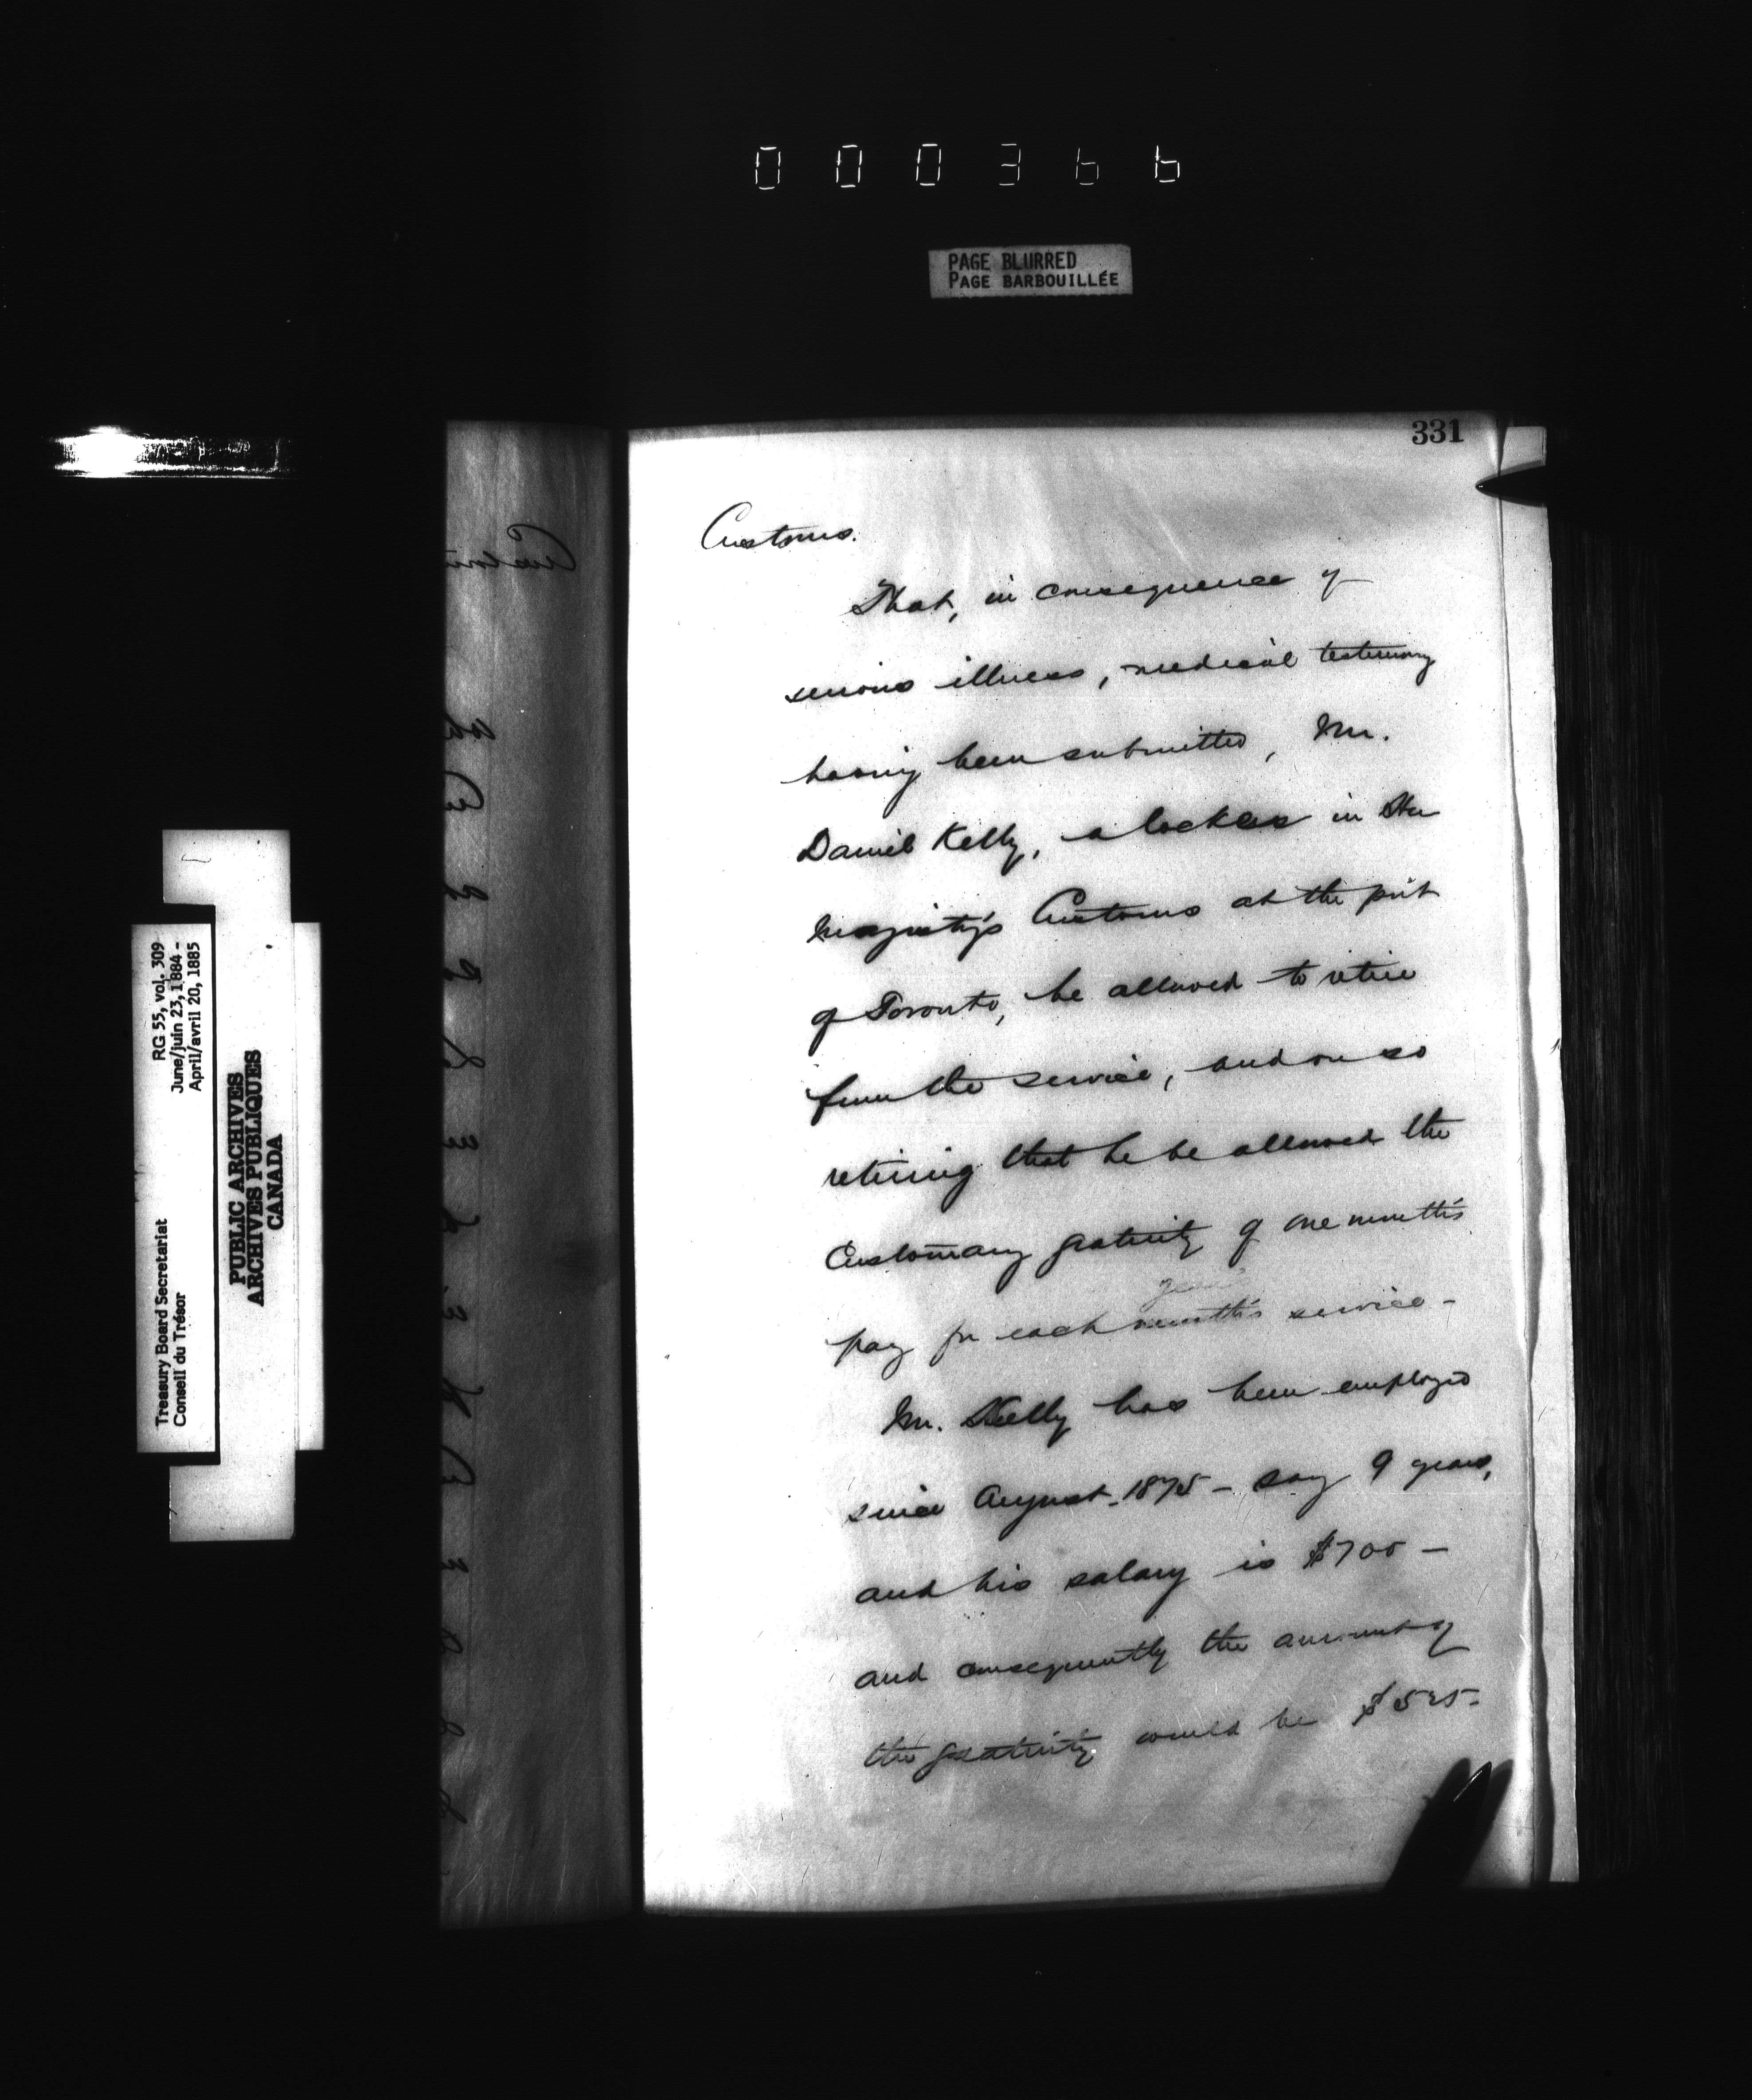 000366
PAGE BLURRED
PAGE BARBOUILLÉE
331
Customs.
That, in consequence of
serious illness, medical testimony
having been submitted, Mr.
Daniel Kelly, a locker in Her
Majesty's Customs at the port
of Toronto, be allowed to retire
from the service, and on so
retiring that he be allowed the
Customary gratuity of one month's
year's
pay for each month's service -
Mr. Kelly has been employed
since August 1875 - say 9 years,
and his salary is $700 -
and consequently the amount of
the gratuity would be $525-
Treasury Board Secretariat
Conseil du Trésor
RG 55, vol. 309
June/juin 23, 1884 -
April/avril 20, 1885
PUBLIC ARCHIVES
ARCHIVES PUBLIQUES
CANADA